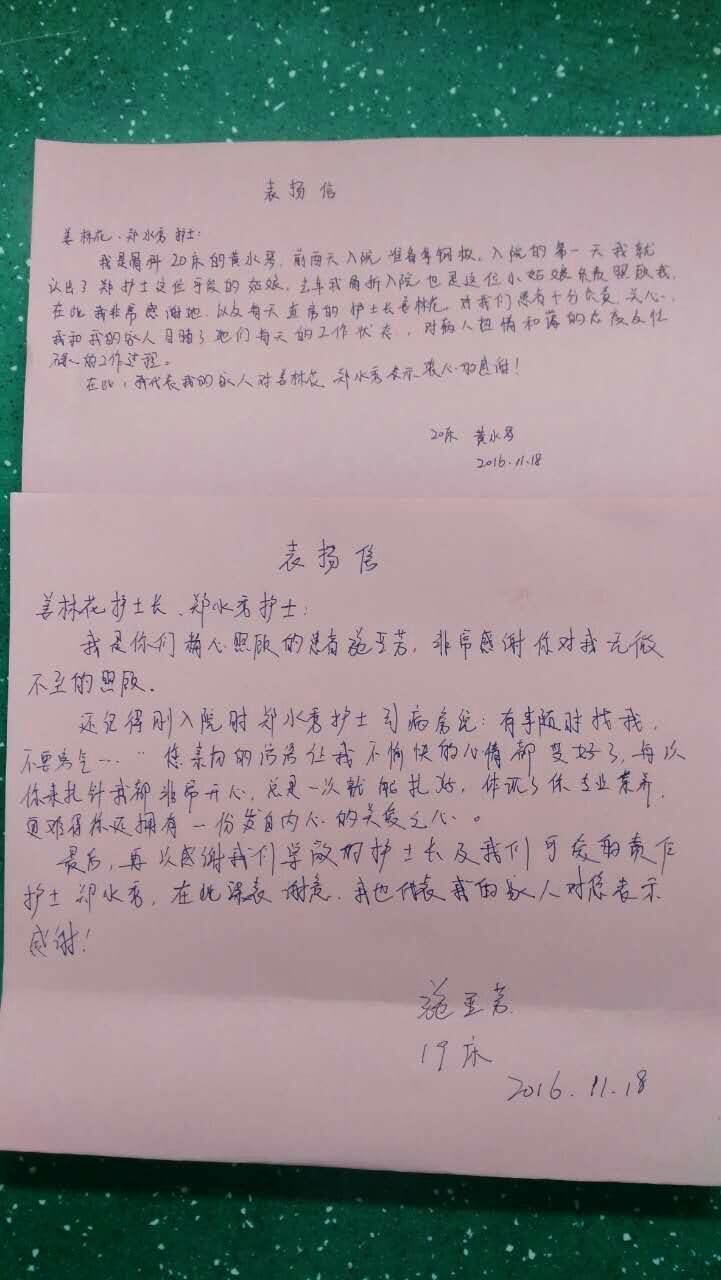 表扬信
姜林花、郑水秀护士:
我是骨科20床的黄水琴,前两天入院准备拿钢板,入院的第一天我就
认出了郑护士这位可爱的姑娘,去年我骨折入院也是这位小姑娘负责照顾我,
在此我非常感谢她,以及每天查房的护士长姜林花,对我们患者十分负责、关心,
我和我的家人目睹了她们每天的工作状态,对病人热情和蔼的态度及忙
碌的工作过程。
在此,我代表我的家人对姜林花、郑水秀表示衷心的感谢!
20床 黄水琴
2016.11.18
表扬信
姜林花护士长、郑水秀护士:
我是你们精心照顾的患者施亚芳,非常感谢你对我无微
不至的照顾.
还记得刚入院时郑水秀护士到病房说:有事随时找我,
不要客气…" 您亲切的话语让我不愉快的心情都变好了,每次
你来扎针我都非常开心,总是一次就能扎好,体现了你专业素养,
更难得你还拥有一份发自内心的关爱之心。
最后,再次感谢我们尊敬的护士长及我们可爱的责任
护士郑水秀,在此深表谢意.我也代表我的家人对您表示
感谢!
施亚芳
19床
2016.11.18